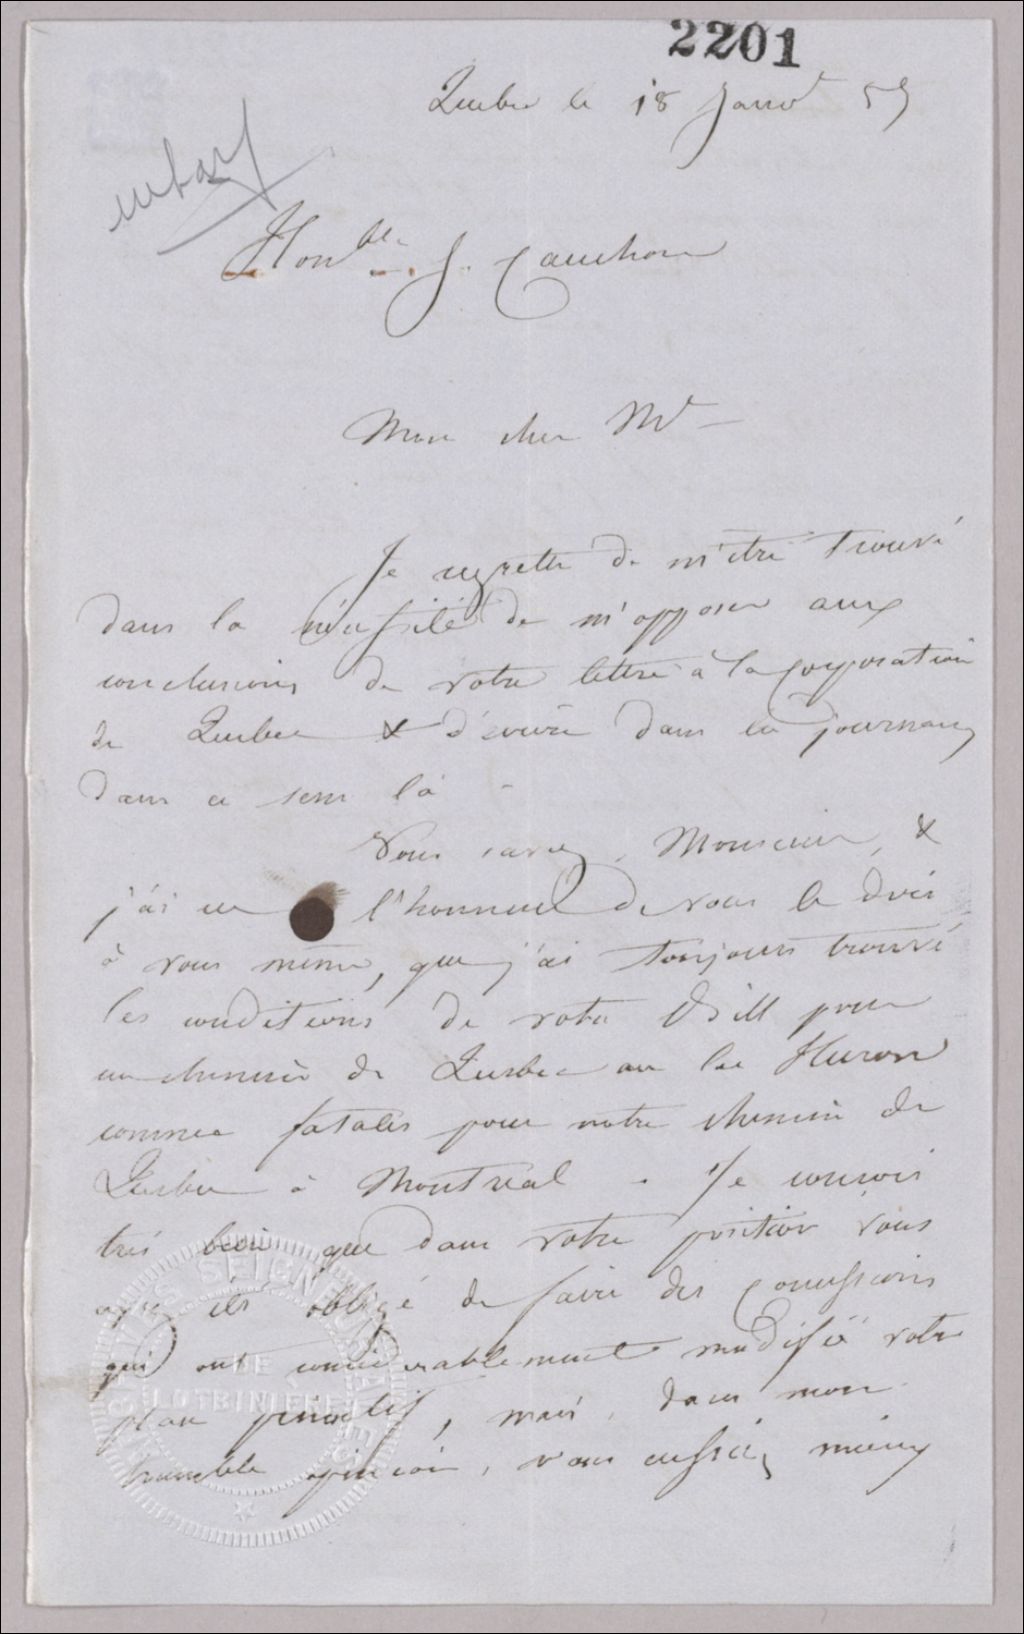 2201
Quebec le 18 Janvr 55
Honble J. Cauchon
Mon cher Mr -
Je regrette de m'être trouvé
dans la nécessité de m'opposer aux
conclusions de votre lettre à la Corporation
de Quebec & d'écrire dans les journaux
dans ce sens là -
Vous savez, Monsieur, &
j'ai eu l'honneur de vous le dire
à vous même, que j'ai toujours trouvé
les conditions de votre Bill pour
un chemin de Quebec au lac Huron
comme fatales pour notre chemin de
Quebec à Montreal. Je conçois
très bien que dans votre position vous
ayez été obligé de faire des concessions
qui ont considerablement modifié votre
plan primitif, mais, dans mon
humble opinion, vous eussiez mieux
ARCHIVES SEIGNEURIALES
DE
LOTBINIÈRE